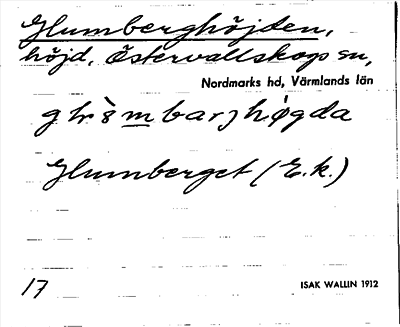 Glumberghöjden,
höjd, Östervallskogs sn,
Nordmarks hd, Värmlands län
Glumberget (E.k.)
17 ISAK WALLIN 1912